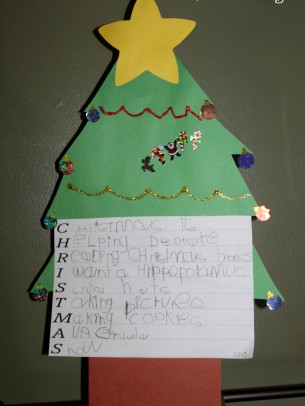 CHristmas Is
Helping Decorate
Reading Christmas books
I want a Hippopotamus
hats
Taking pictures
Making cookies
A
SnoW